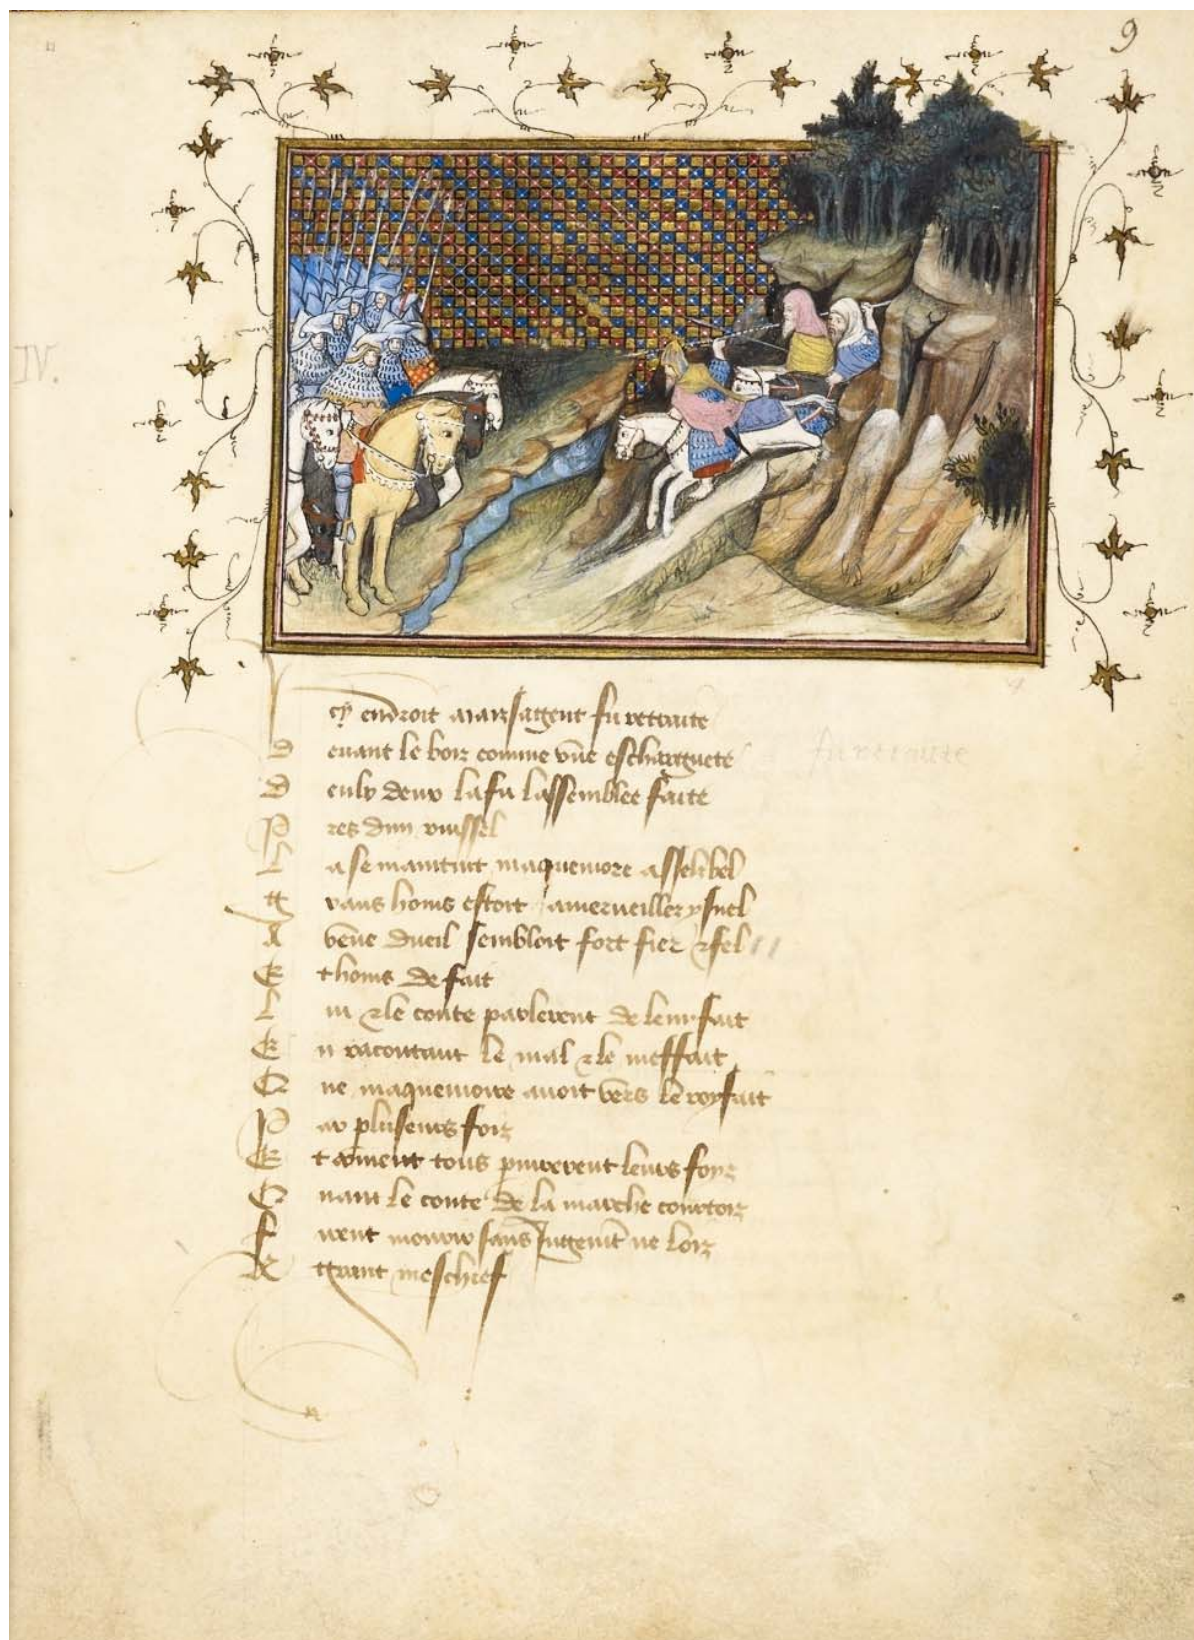 9
IV.
cy endroit marzsaigent fu retraite
D euant le boiz comme vne escharguete
fu retraite
D eulx deux la fu lassemblee faite
P res dun ruissel
L a se maintint maquemore asselibel
G rans homs estoit a merueillez ysnel
A veue dueil sembloit fort fier & fel
E t homs de fait
L ui & le conte parlerent de leur fait
E n racontant le mal & le meffait
Q ue maquemore auoit vers le roy fait
P ar plusieurs foiz
E t coment tous pariurerent leurs foyz
Q uant le conte de la marche courtoiz
F irent mourir sans Jugemt ne loiz
A grant meschief